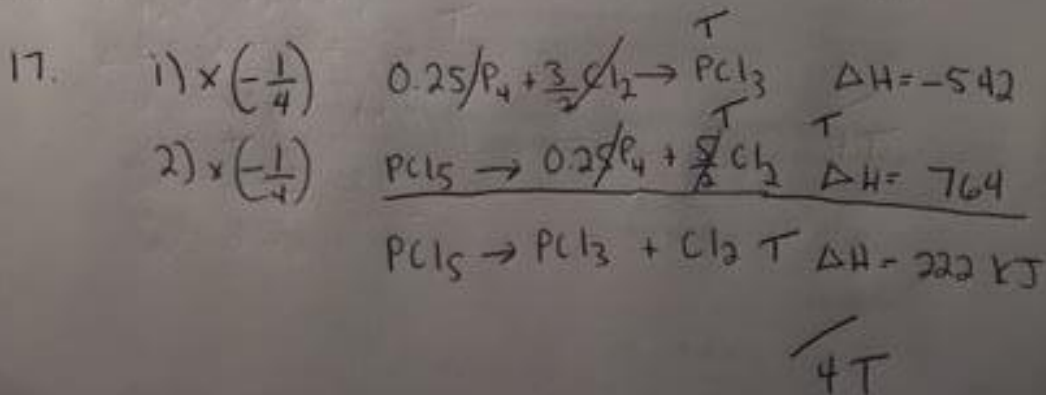 T
17. 1) × (-1/4) 0.25 P₄ + 3/2 Cl₂ → PCl₃ ΔH = -542
T T
2) × (-1/4) PCl₅ → 0.25 P₄ + 5/2 Cl₂ ΔH = 764
PCl₅ → PCl₃ + Cl₂ T ΔH = 222 kJ
/4T